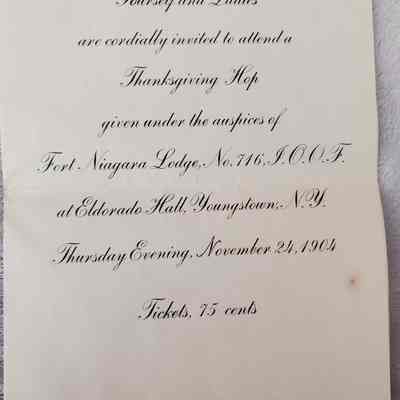 Yourself and Ladies
are cordially invited to attend a
Thanksgiving Hop
given under the auspices of
Fort Niagara Lodge, No. 716, I.O.O.F.
at Eldorado Hall, Youngstown, N.Y.
Thursday Evening, November 24, 1904
Tickets, 75 cents